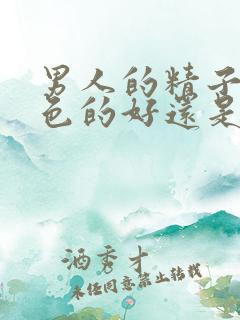 男人的精子
色的好還是
酒秀才
未经同意禁止转载